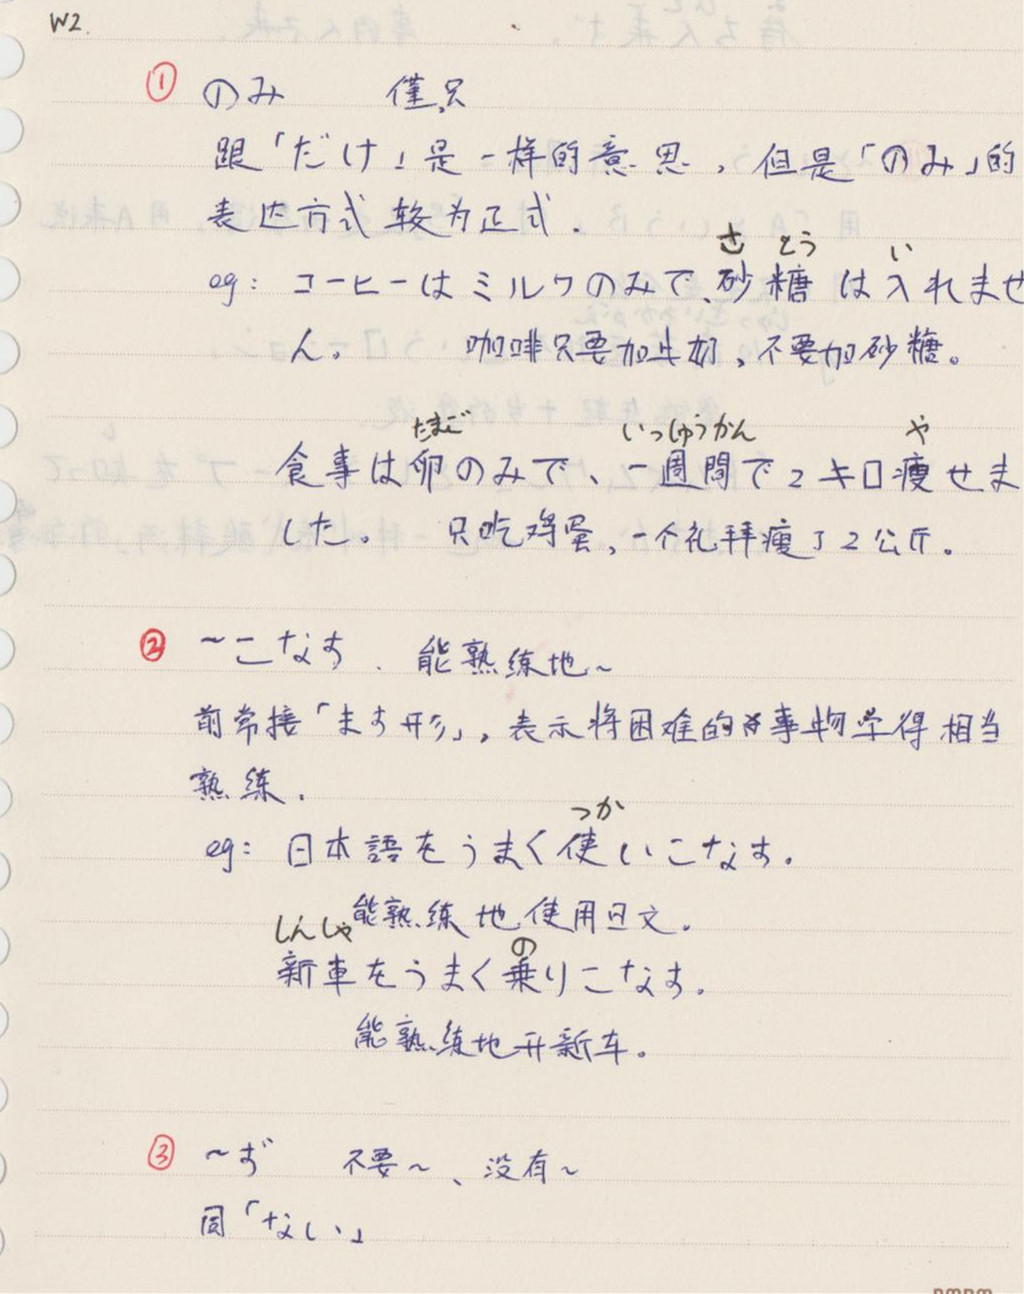 W2.
① のみ 僅,只
跟「だけ」是一样的意思,但是「のみ」的
表达方式较为正式.
さ とう い
eg: コーヒーはミルクのみで、砂糖は入れませ
ん。 咖啡只要加牛奶,不要加砂糖。
たまご いっしゅうかん や
食事は卵のみで、一週間で2キロ痩せま
した。 只吃鸡蛋,一个礼拜瘦了2公斤。
② ~こなす. 能熟练地~
前常接「ます形」,表示将困难的事物学得相当
熟练.
つか
eg: 日本語をうまく使いこなす.
能熟练地使用日文.
しんしゃ の
新車をうまく乗りこなす.
能熟练地开新车。
③ ~ず 不要~、没有~
同「ない」